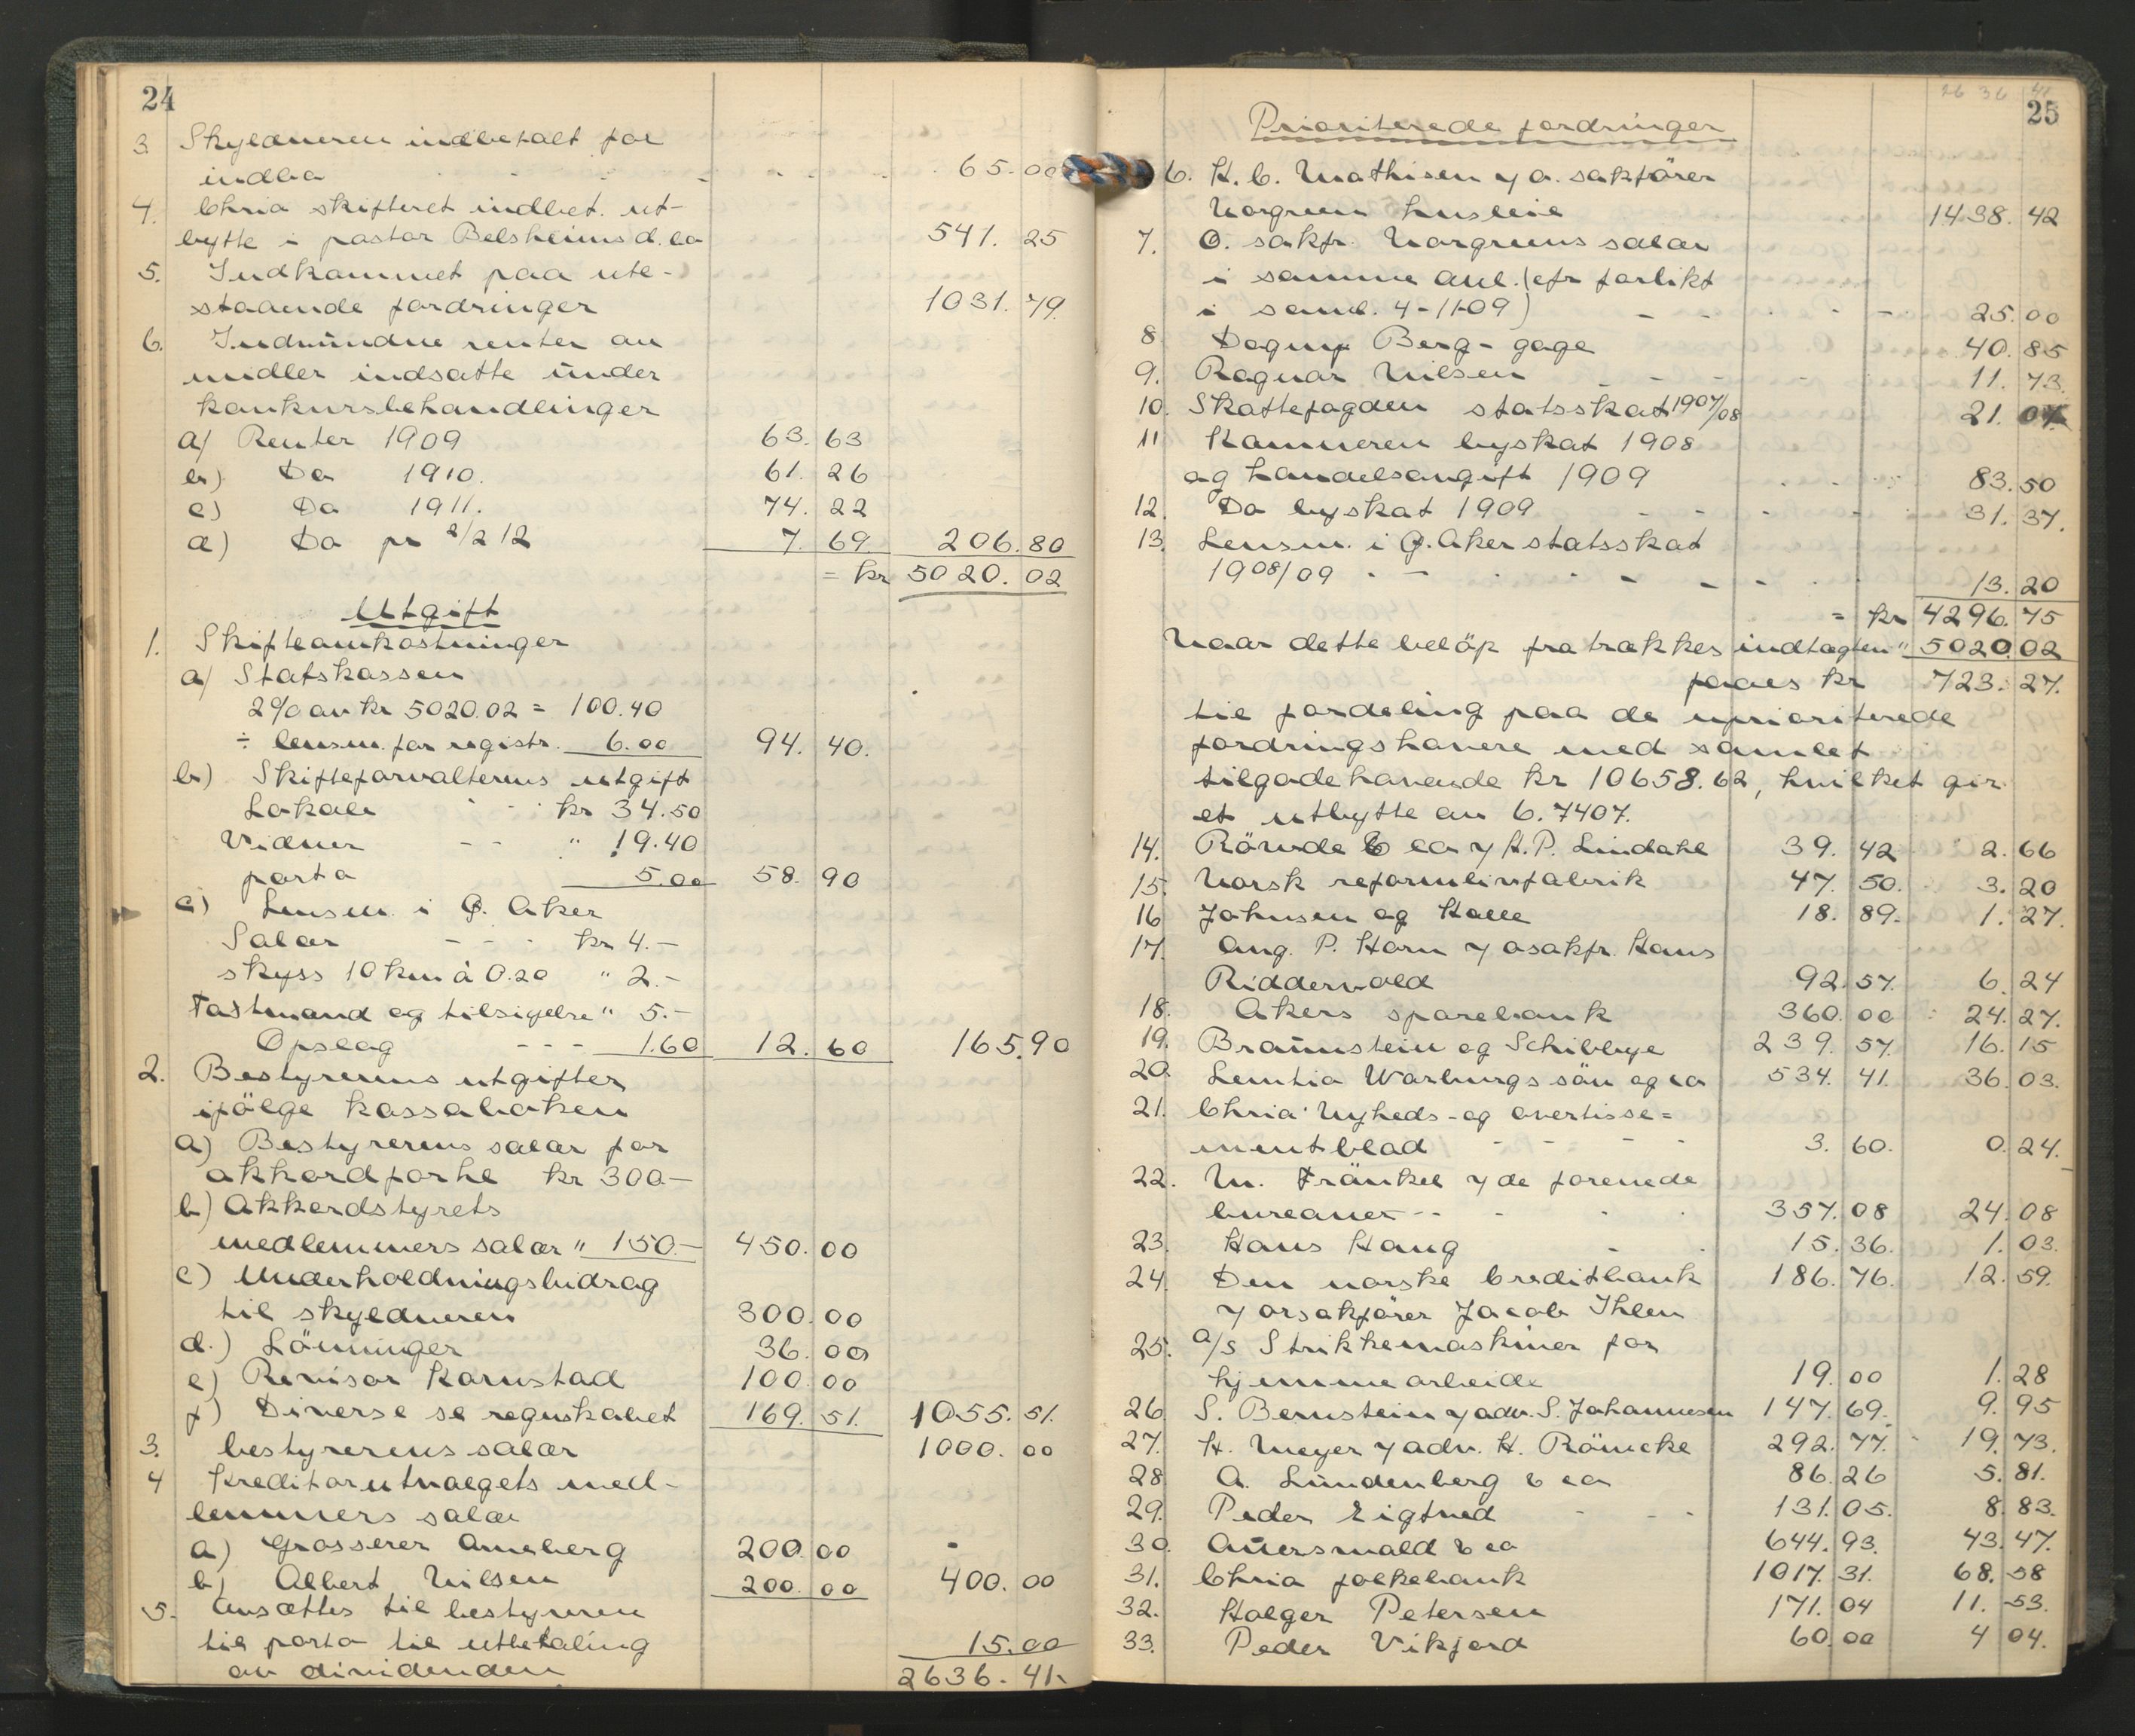 24
3. Skyldneren indbetalt for
indbo - - - 65.00
4. Chria skifteret indbet. ut-
bytte i pastor Belsheims d. bo 541.25
5. Indkommet paa ute-
staaende fordringer 1031.79.
6. Indvundne renter av
midler indsatte under
konkursbehandlinger
a) Renter 1909 63.63
b) Do 1910. 61.26
c) Do 1911. 74.22
d) Do pr 2/2 12 7.69 206.80
= kr 5020.02
Utgift
1. Skifteomkostninger
a) Statskassen
2% av kr 5020.02 = 100.40
÷ lensm. for registr. 6.00 94.40.
b) Skifteforvalterens utgift
Lokale - - kr 34.50
Vidner - - " 19.40
porto 5.00 58.90
c) Lensm. i Ø. Aker
Salær - - - kr 4.-
skyss 10 km à 0.20 " 2.-
Tastmand og tilsigelse " 5.-
Opslag - - - 1.60 12.60 165.90
2. Bestyrerens utgifter
ifölge kassaboken
a) Bestyrerens salær for
akkordforhl kr 300.-
b) Akkordstyrets
medlemmers salær " 150.- 450.00
c) Underholdningsbidrag
til skyldneren 300.00
d.) Lönninger 36.00
e) Revisor Kornstad 100.00
f) Diverse se regnskabet 169.51. 1055.51.
3. bestyrerens salær 1000.00
4 Kreditorutvalgets med-
lemmers salær
a) Grosserer Ameberg 200.00
b) Albert Nilsen 200.00 400.00
5. Ansættes til bestyreren
til porto til utbetaling 15.00
av dividenden 2636.41.
26 36 41
25
Prioriterede fordringer
6. H. C. Mathisen v/ o. sakfőrer
Norgreen husleie 1438.42
7. O. sakfr. Norgreens salær
i samme anl. (cfr forlikt
i saml. 4-11-09) - - - 25.00
8 Dagny Berg - gage 40.85
9. Ragnar Nilsen - - - 11.73.
10. Skattefogden statsskat 1907/08 21.07
11 Kæmneren byskat 1908
og handelsavgift 1909 83.50
12. Do byskat 1909 - - - 31.37.
13. Lensm. i Ø. Aker statsskat
1908/09 - - - 13.20
= kr 4296.75
Naar dette belöp fratrækkes indtægten " 5020.02
faaes kr 723.27.
til fordeling paa de uprioriterede
fordringshavere med samlet
tilgodehavende kr 10658.62, hvilket gir
et utbytte av 6.7407.
14. Rönde & Co v/ H. P. Lindahl 39.42 2.66
15. Norsk reformlinfabrik 47.50. 3.20
16 Johnsen og Halle 18.89. 1.27.
17. Aug. P. Horn v/ osakfr. Hans
Riddervold 92.57. 6.24
18. Akers sparebank 360.00 24.27.
19. Braunstein og Schibbye 239.57. 16.15
20. Levitia Warburgs sön og co 534.41. 36.03.
21. Chria Nyheds- og avertisse=
mentblad - - - 3.60. 0.24.
22. M. Fränkel v/ de forenede
bureauer - - 357.08 24.08
23. Hans Haug - 15.36. 1.03.
24. Den norske Creditbank 186.76. 12.59.
v/ orsakförer Jacob Ihlen
25. a/s Strikkemaskiner for
hjemmearbeide 19.00 1.28
26. S. Bernstein v/ adv. S. Johannesen 147.69. 9.95
27. H. Meyer v/ adv. H. Römcke 292.77. 19.73.
28 A. Lundenberg & co 86.26 5.81.
29. Peder Eigtved - - - 131.05. 8.83.
30. Auerswald & co 644.93. 43.47.
31. Chria folkebank 1017.31. 68.58
32. Holger Petersen 171.04 11.53.
33. Peder Vikjord 60.00 4 04.